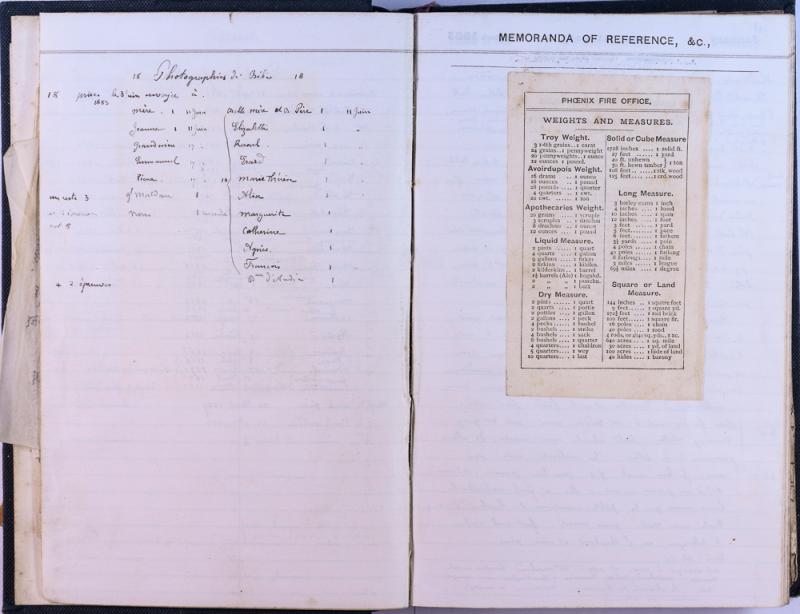 18 Photographies de Bébé 18
18 prises le 3 juin envoyé à.
1883
mère . 1 11 Juin
Jeanne . 1 11 Juin
Emmanuel 17
en reste 3
+ 2 épreuves
et mère et Père 1 11 Juin
Elizabeth 1 "
Raoul 1 "
1 "
Marie Thérèse 1 "
Alix 1 "
Marguerite 1 "
Catherine 1 "
Agnès 1 "
François 1 "
MEMORANDA OF REFERENCE, &C.,
PHŒNIX FIRE OFFICE.
WEIGHTS AND MEASURES.
Troy Weight.
3 1-6th grains .. 1 carat
24 grains .. 1 pennyweight
20 pennyweights .. 1 ounce
12 ounces .. 1 pound
Avoirdupois Weight.
16 drams .. 1 ounce
16 ounces .. 1 pound
28 pounds .. 1 quarter
4 quarters .. 1 cwt.
20 cwt. .. 1 ton
Apothecaries Weight.
20 grains .. 1 scruple
3 scruples .. 1 drachm
8 drachms .. 1 ounce
12 ounces .. 1 pound
Liquid Measure.
2 pints ...... 1 quart
4 quarts ...... 1 gallon
9 gallons .... 1 firkin
2 firkins .... 1 kilder.
2 kilderkins .. 1 barrel
1½ barrels (Ale) 1 hogshd.
2 " " 1 punchn.
2 " " 1 butt
Dry Measure.
2 pints ...... 1 quart
2 quarts ...... 1 pottle
2 pottles .... 1 gallon
2 gallons .... 1 peck
4 pecks ...... 1 bushel
2 bushels .... 1 strike
4 bushels .... 1 sack
8 bushels .... 1 quarter
4 quarters .... 1 chaldron
5 quarters .... 1 wey
10 quarters .... 1 last
Solid or Cube Measure
1728 inches .... 1 solid ft.
27 feet ...... 1 yard
40 ft. unhewn } 1 ton
50 ft. hewn timber
108 feet .... 1 stk. wood
128 feet .... 1 crd. wood
Long Measure.
3 barley corns 1 inch
4 inches .... 1 hand
10 inches .... 1 span
12 inches .... 1 foot
3 feet ...... 1 yard
5 feet ...... 1 pace
6 feet ...... 1 fathom
5½ yards .... 1 pole
4 poles ...... 1 chain
40 poles .... 1 furlong
8 furlongs .. 1 mile
3 miles .... 1 league
69½ miles .... 1 degree
Square or Land
Measure.
144 inches .. 1 square foot
9 feet ...... 1 square yd.
272¼ feet .... 1 rod brick
100 feet ...... 1 square flr.
16 poles .... 1 chain
40 poles .... 1 rood
4 rods, or 4840 sq. yds., 1 ac.
640 acres .... 1 sq. mile
30 acres .... 1 yd. of land
100 acres .... 1 hide of land
40 hides .... 1 barony